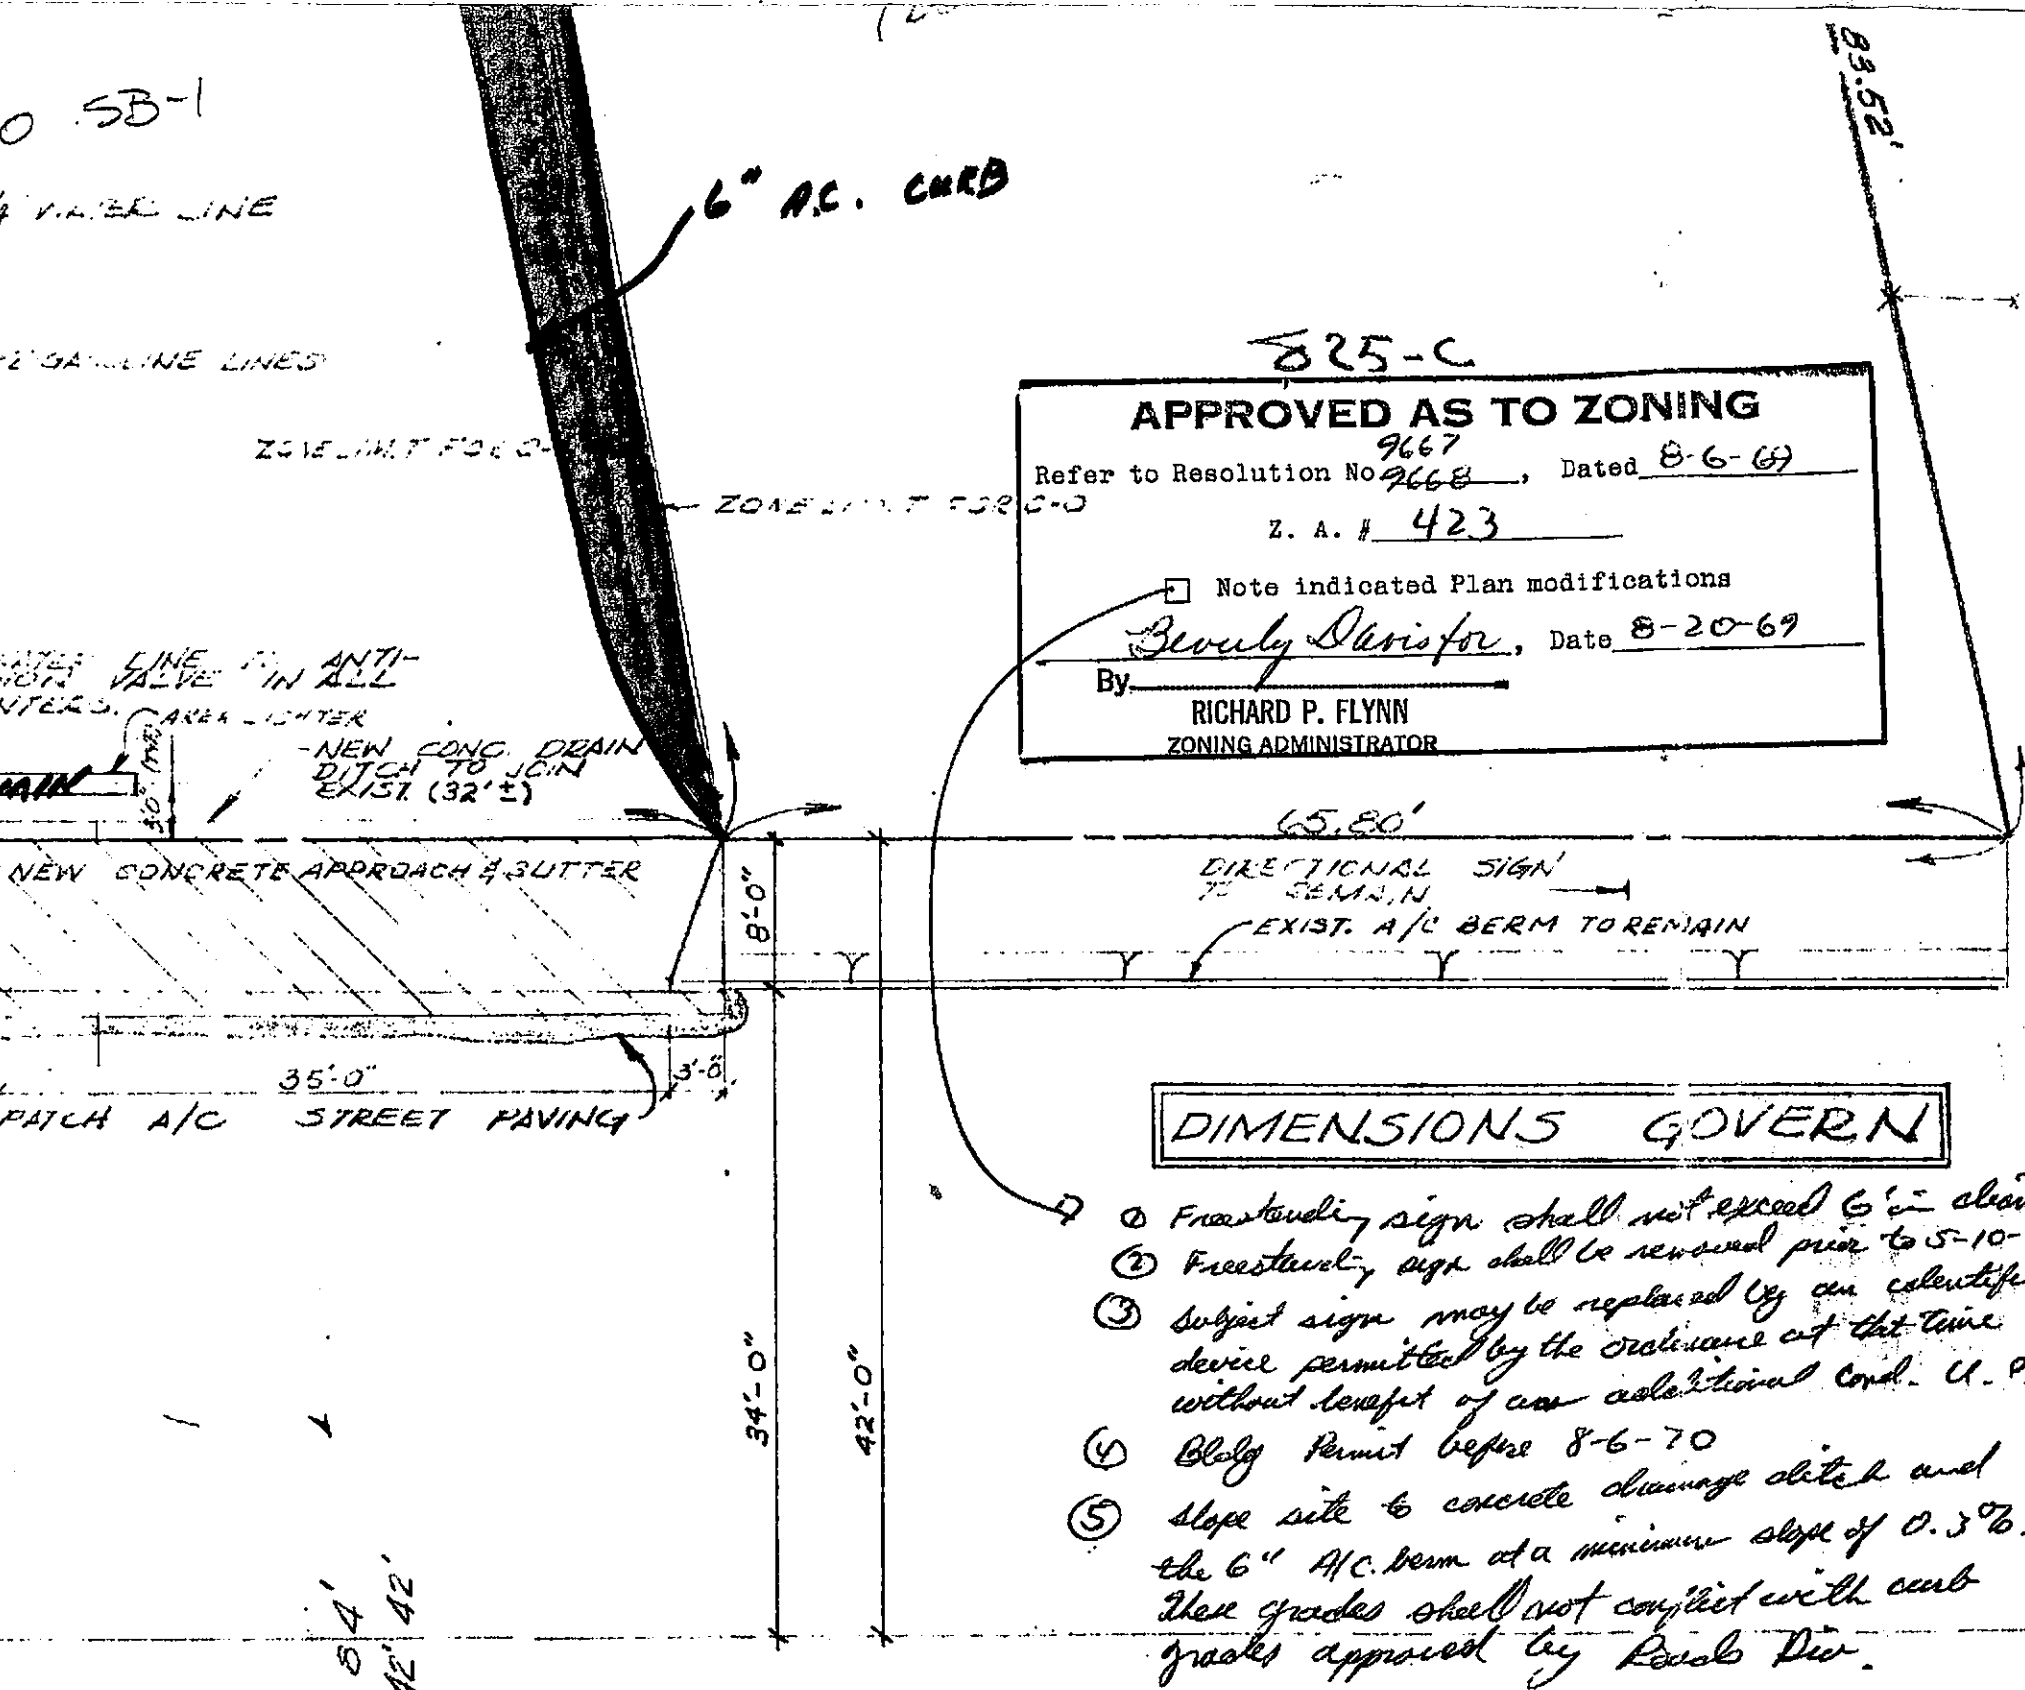 83.52'
SB-1
LINE
6" A.C. CURB
LINES
825-C
APPROVED AS TO ZONING
9667
Refer to Resolution No. 9668, Dated 8-6-69
Z. A. # 423
ZONE LIMIT FOR C-O
ZONE LIMIT FOR C-
Note indicated Plan modifications
Beverly Davis for, Date 8-20-69
By
RICHARD P. FLYNN
ZONING ADMINISTRATOR
LINE ANTI-
VALVE IN ALL
AREA LIGHTER
NEW CONC. DRAIN
DITCH TO JOIN
EXIST. (32'±)
3'0"
65.80'
NEW CONCRETE APPROACH & GUTTER
DIRECTIONAL SIGN
TO REMAIN
8'-0"
EXIST. A/C BERM TO REMAIN
35'-0"
3'-0"
PATCH A/C STREET PAVING
DIMENSIONS GOVERN
① Freestanding sign shall not exceed 6' in
② Freestanding sign shall be removed prior to 5-10-
③ Subject sign may be replaced by an
device permitted by the ordinance at that time
without benefit of an additional Cond. U. P.
34'-0"
42'-0"
④ Bldg Permit before 8-6-70
⑤ Slope site to concrete drainage ditch and
the 6" A/C. berm at a minimum slope of 0.3%.
These grades shall not conflict with curb
grades approved by Roads Div.
84'
42' 42'